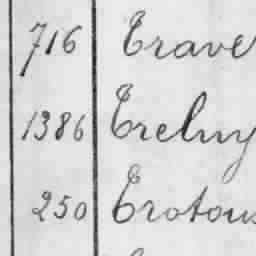 716 Trave
1386 Trelny
250 Trotous